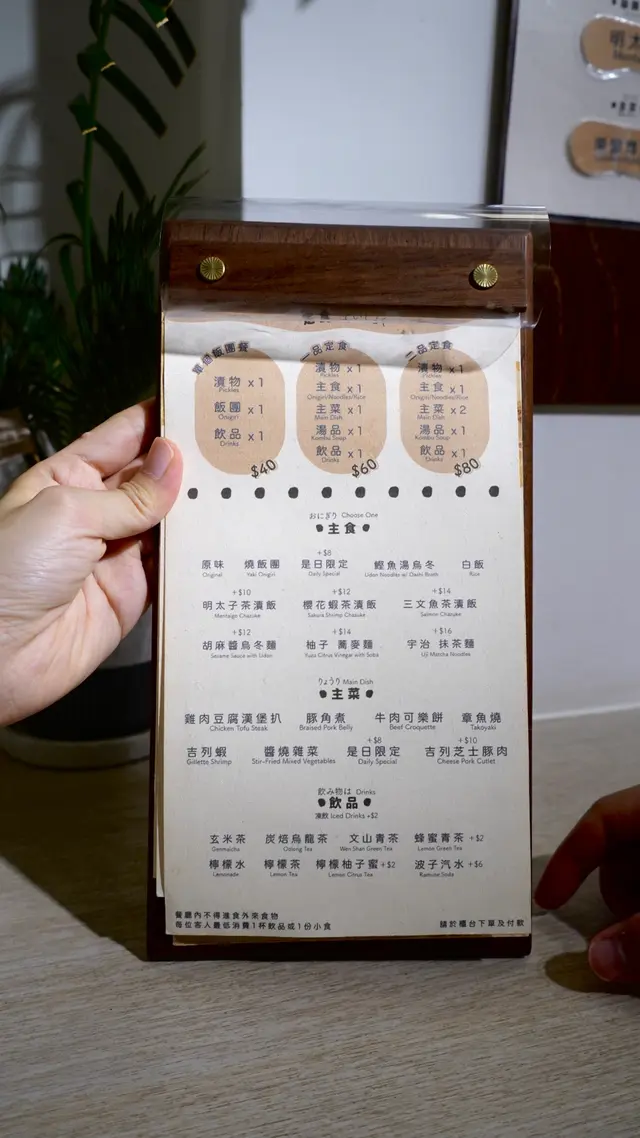 單個飯團餐
漬物 x1
Pickles
飯團 x1
Onigiri
飲品 x1
Drinks
$40
一品定食
漬物 x1
Pickles
主食 x1
Onigiri/Noodles/Rice
主菜 x1
Main Dish
湯品 x1
Kombu Soup
飲品 x1
Drinks
$60
二品定食
漬物 x1
Pickles
主食 x1
Onigiri/Noodles/Rice
主菜 x2
Main Dish
湯品 x1
Kombu Soup
飲品 x1
Drinks
$80
おにぎり Choose One
主食
+$8
原味 燒飯團 是日限定 鰹魚湯烏冬 白飯
Original Yaki Onigiri Daily Special Udon Noodles w/ Dashi Broth Rice
+$10 +$12 +$14
明太子茶漬飯 櫻花蝦茶漬飯 三文魚茶漬飯
Mentaigo Chazuke Sakura Shrimp Chazuke Salmon Chazuke
+$12 +$14 +$16
胡麻醬烏冬麵 柚子 蕎麥麵 宇治 抹茶麵
Sesame Sauce with Udon Yuzu Citrus Vinegar with Soba Uji Matcha Noodles
りょうり Main Dish
主菜
雞肉豆腐漢堡扒 豚角煮 牛肉可樂餅 章魚燒
Chicken Tofu Steak Braised Pork Belly Beef Croquette Takoyaki
+$8 +$10
吉列蝦 醬燒雜菜 是日限定 吉列芝士豚肉
Gillette Shrimp Stir-Fried Mixed Vegetables Daily Special Cheese Pork Cutlet
飲み物は Drinks
飲品
凍飲 Iced Drinks +$2
玄米茶 炭焙烏龍茶 文山青茶 蜂蜜青茶 +$2
Genmaicha Oolong Tea Wen Shan Green Tea Green Tea
檸檬水 檸檬茶 檸檬柚子蜜 +$2 波子汽水 +$6
Lemonade Lemon Tea Lemon Citrus Tea Ramune Soda
餐廳內不得進食外來食物
每位客人最低消費1杯飲品或1份小食
請於櫃台下單及付款
明太